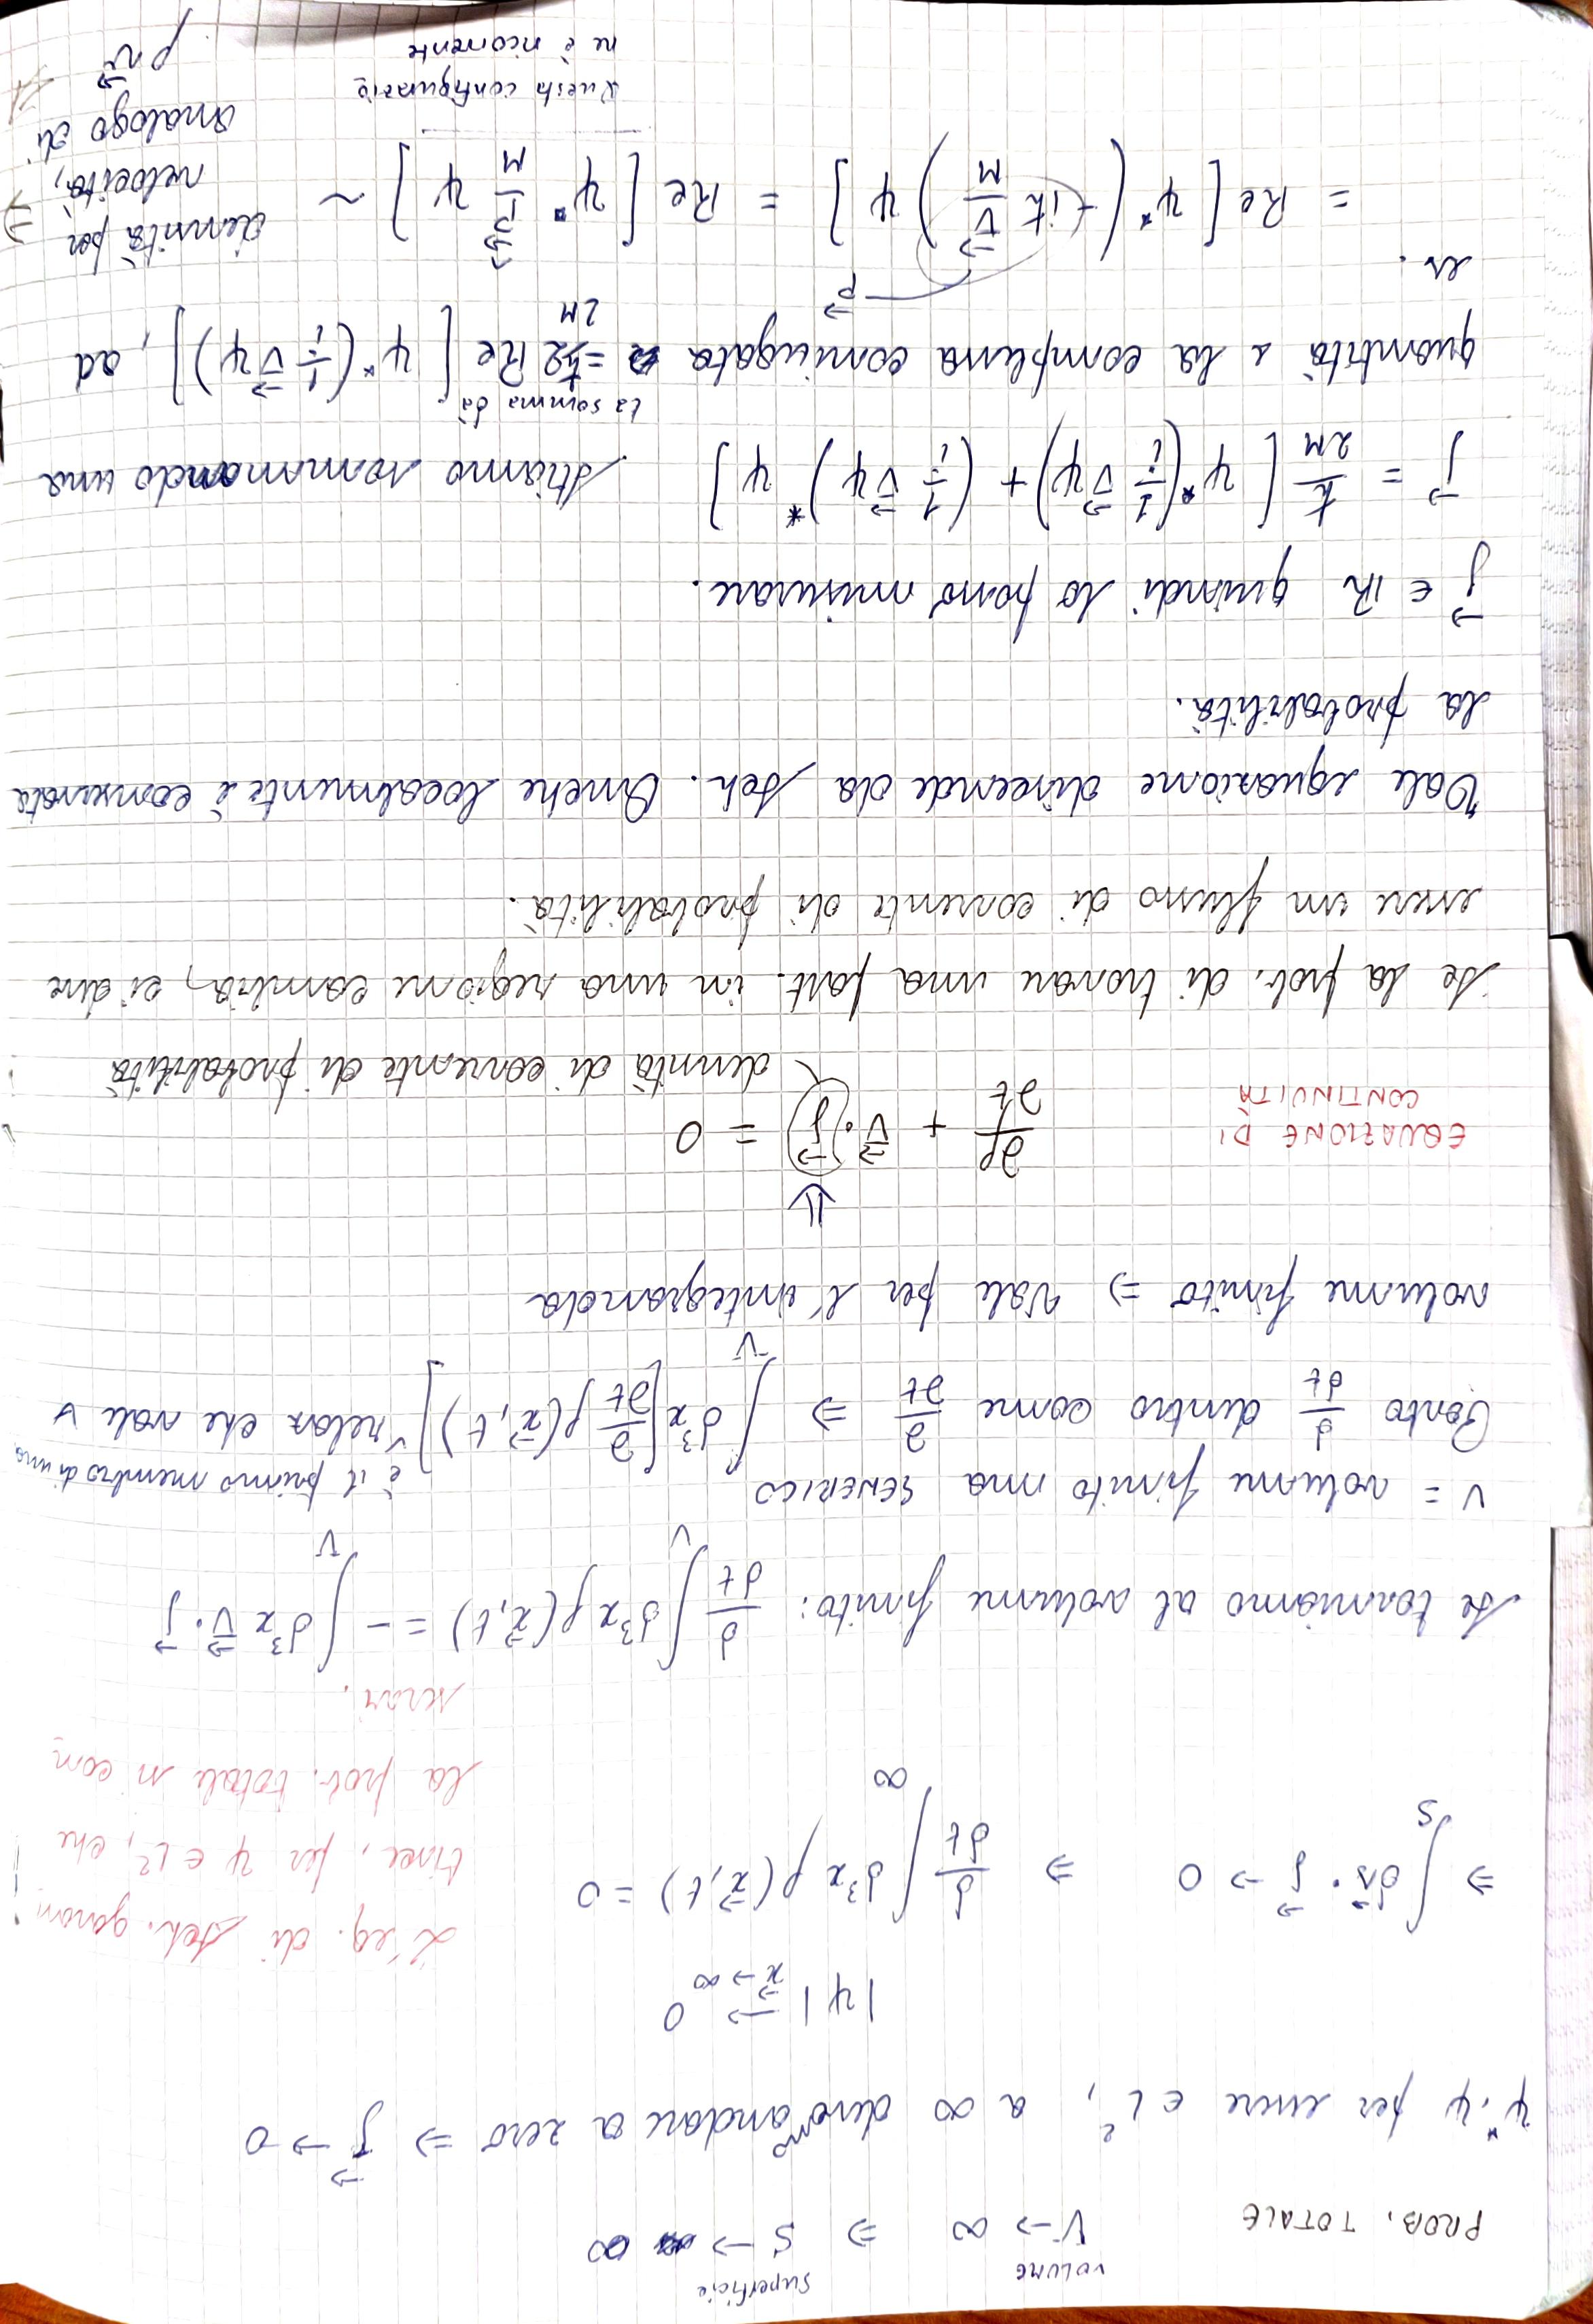 VOLUME superficie
PROB. TOTALE V → ∞ ⇒ S → ∞
ψ*, ψ per essere ∈ L², a ∞ devono andare a zero ⇒ j⃗ → 0
|ψ| → 0
x⃗ → ∞
⇒ ∫_S ds⃗ · j⃗ → 0 ⇒ d/dt ∫_∞ d³x ρ(x⃗,t) = 0
L'eq. di Sch. garan
tisce, per ψ ∈ L², che
la prob. totale si con
servi.
Se torniamo al volume finito: d/dt ∫_V d³x ρ(x⃗,t) = - ∫_V d³x ∇⃗ · j⃗
V = volume finito ma GENERICO
è il primo membro di una
Porto d/dt dentro come ∂/∂t ⇒ ∫_V d³x [∂/∂t ρ(x⃗,t)] relaz che vale ∀
volume finito ⇒ Vale per l'integranda
⇓
EQUAZIONE DI
CONTINUITÀ
∂ρ/∂t + ∇⃗ · j⃗ = 0
densità di corrente di probabilità
Se la prob. di trovare una part. in una regione cambia, ci deve
essere un flusso di corrente di probabilità.
Tale equazione discende da Sch. Anche localmente è conservata
la probabilità.
j⃗ ∈ ℝ quindi lo posso misurare.
j⃗ = ħ/2M [ψ*(1/i ∇⃗ψ) + (1/i ∇⃗ψ)* ψ] stiamo sommando una
la somma dà
quantità e la complessa coniugata = ħ/2M 2 Re [ψ*(1/i ∇⃗ψ)], ad
es.
p⃗
= Re [ψ* (-iħ ∇⃗/M) ψ] = Re [ψ* p⃗/M ψ] ~ densità per
velocità,
analogo di
ρv⃗
⇒
Questa configurazio
ne è ricorrente